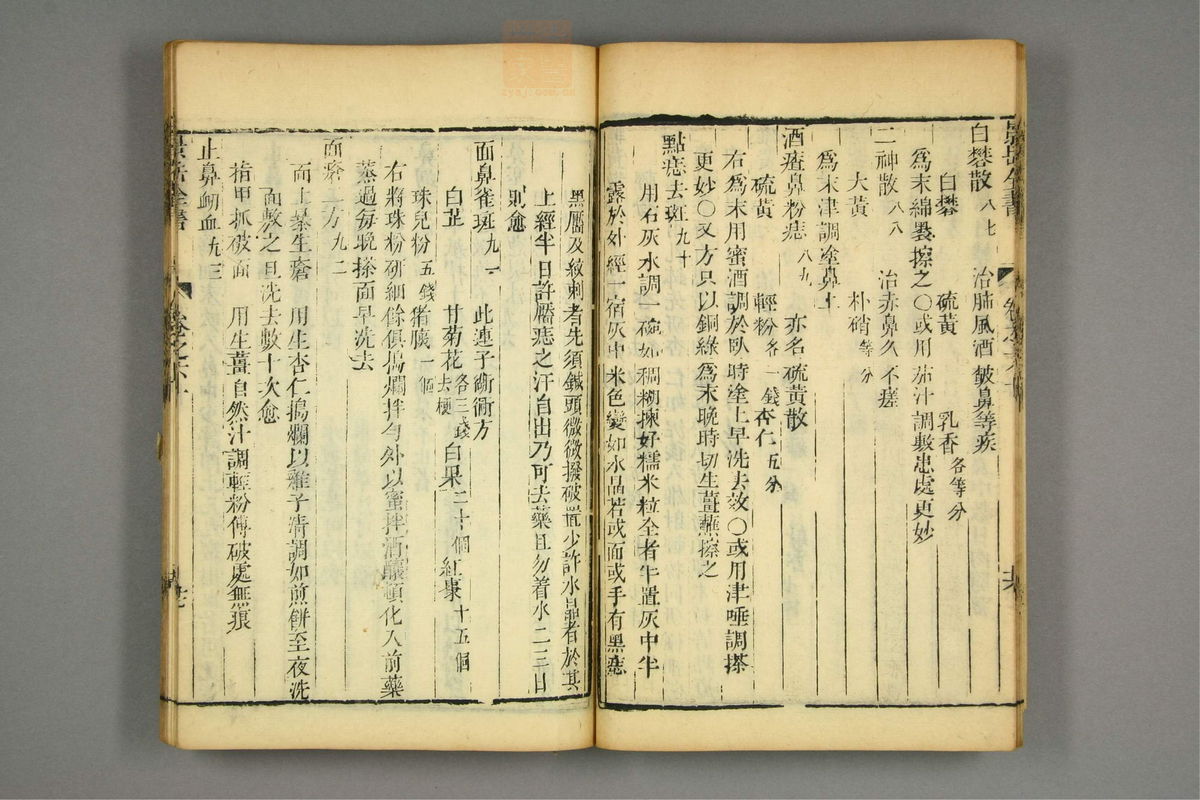 景岳全書
白礬散 八七 治肺風酒皶鼻等疾
白礬 硫黃 乳香 各等分
爲末綿裹擦之○或用茄汁調敷患處更妙
二神散 八八 治赤鼻久不瘥
大黃 朴硝 等分
爲末津調塗鼻上
酒㾴鼻粉痣 八九 亦名硫黃散
硫黃 輕粉 各一錢 杏仁 五分
右爲末用蜜酒調於臥時塗上早洗去效○或用津唾調搽
更妙○又方只以銅綠爲末晚時切生薑蘸擦之
點痣去斑 九十
用石灰水調一碗如稠糊揀好糯米粒全者半置灰中半
露於外經一宿灰中米色變如水晶若或面或手有黑痣
黑靨及紋刺者先須鍼頭微微撥破置少許水晶者於其
上經半日許靨痣之汁自出乃可去藥且勿着水二三日
則愈
面鼻雀斑 九一 此連子衚衕方
白芷 甘菊花 各三錢去梗 白果 二十個 紅棗 十五個
珠兒粉 五錢 猪胰 一個
右將珠粉研細餘俱搗爛拌勻外以蜜拌酒釀頓化入前藥
蒸過每晚搽面早洗去
面瘡二方 九二
面上暴生瘡 用生杏仁搗爛以雞子清調如煎餅至夜洗
面敷之旦洗去數十次愈
指甲抓破面 用生薑自然汁調輕粉傅破處無痕
止鼻衂血 九三
景岳全書